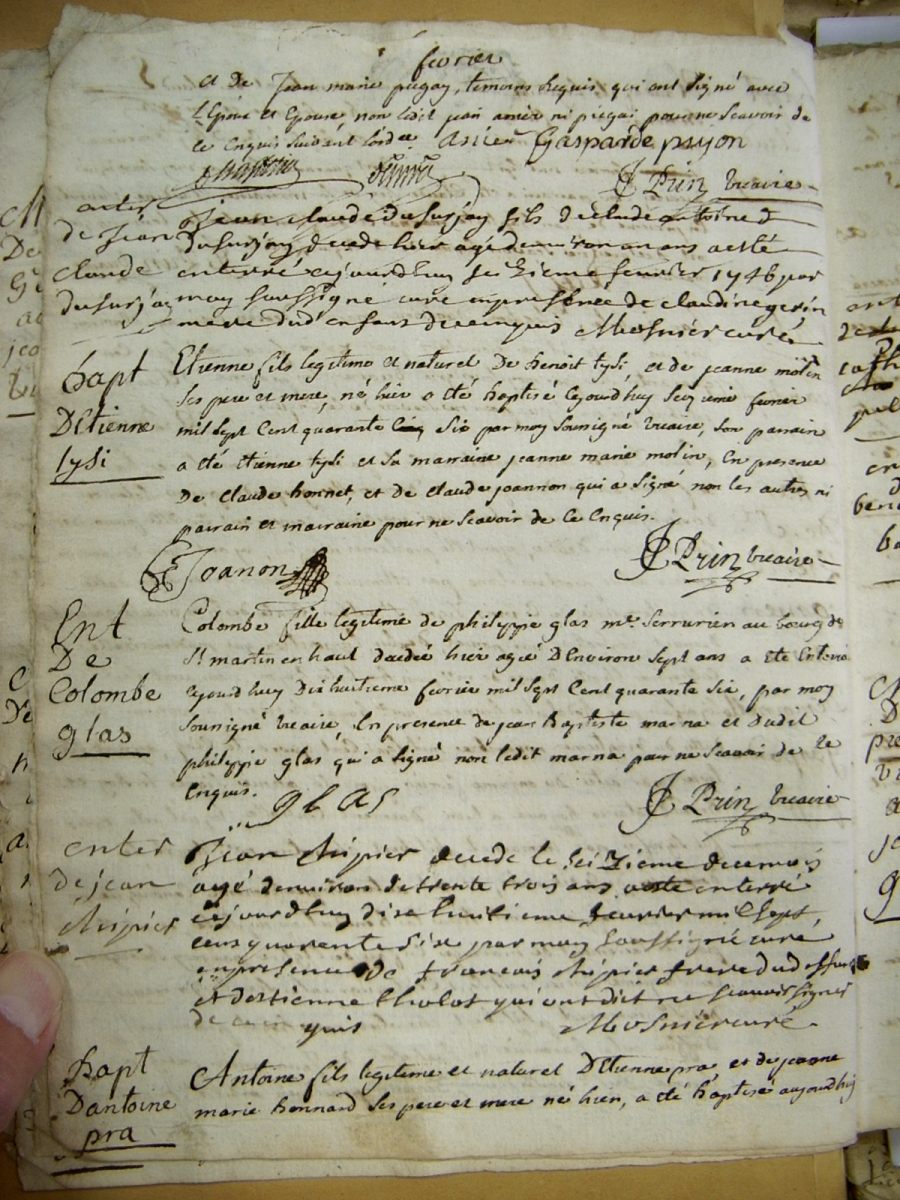 fevrier
et De Jean marie pregay, temoins Requis qui ont signé avec
l'Epoux et Epouse non ledit jean ni piegai pour ne Scavoir de
ce Enquis suivant lord Gasparde payon
J Prin vicaire
enter
de Jean
claude
dusurjay
Jean claude dusurjay fils de claude antoine
dusurjay decede hier agé denviron un ans a esté
enterré cejourdhuy seizieme fevrier 1746 par
moy soussigné curé en presence de claudine gerin
mere dud enfans de ce enquis Mosnier curé
bapt
DEtienne
tysi
Etienne fils legitime et naturel De benoit tysi, et de jeanne molin
ses pere et mere, né hier a été baptisé cejourdhuy seizieme fevrier
mil sept Cent quarante six par moy soussigné vicaire, son parrain
a été Etienne tysi et sa marraine jeanne marie molin, En presence
De claude bonnet, et de claude joannon qui a signé non les autres ni
parrain et marraine pour ne scavoir de ce Enquis.
C Joanon
J Prin vicaire
Ent
De
Colombe
glas
Colombe fille legitime de philippe glas me. serrurier au bourg de
St martin en haut decedée hier agée D'Environ sept ans a été Enterré
cejourdhuy dix huitieme fevrier mil sept Cent quarante six, par moy
soussigné vicaire, En presence de jean Baptiste marna et dudit
philippe glas qui a signé non ledit marna pour ne scavoir de ce
Enquis. glas
J Prin vicaire
enter
de jean
chipier
Jean chipier decede le seizieme de ce mois
agé denviron de trente trois ans a esté enterré
cejourdhuy dixe huitieme fevrier mil sept
cens quarante six par moy soussigné curé
en presence de francois chipier frere du deffunt
et destienne Cholot qui ont dict ne scavoir signer
de ce en quis Mosnier curé
bapt
Dantoine
pra
Antoine fils legitime et naturel D'Etienne pra, et de jeanne
marie bonnard ses pere et mere né hier, a été baptisé aujourdhuy